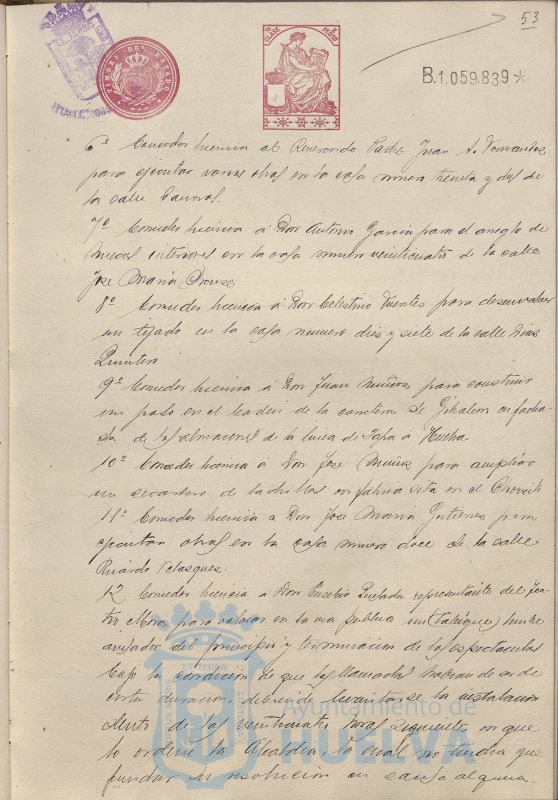 53
TIMBRE DEL ESTADO
CLASE
B.1.059.839*
6º Conceder licencia al Reverendo Padre Juan A. Fernandez
para ejecutar varias obras en la casa numero treinta y dos de
la calle
7º Conceder licencia á Don Antonio Garcia para el arreglo de
interiores en la casa numero veinticuatro de la calle
Jose Maria
8º Conceder licencia á Don Celestino Fuentes para desenvolver
un tejado en la casa numero diez y siete de la calle Diaz
Quintero
9º Conceder licencia á Don Juan Muñoz para construir
un paso en el de la carretera de Gibraleon en
de los almacenes de la linea de Zafra a Huelva
10º Conceder licencia á Don Jose Muñiz para ampliar
un secadero de ladrillos en fabrica sita en el
11º Conceder licencia a Don Jose Maria Gutierrez para
ejecutar obras en la casa numero doce de la calle
Ricardo Velazquez.
12 Conceder licencia á Don Eusebio Quesada representante del Tea-
tro Mora para colocar en la via publica un timbre
avisador del principio y terminacion de los espectaculos
bajo la condicion de que las llamadas habran de ser de
corta duracion, debiendo levantarse la instalacion
dentro de las veinticuatro horas siguientes en que
lo ordene la Alcaldia, lo cual no tendra que
fundar su resolucion en causa alguna.
Ayuntamiento de
HUELVA